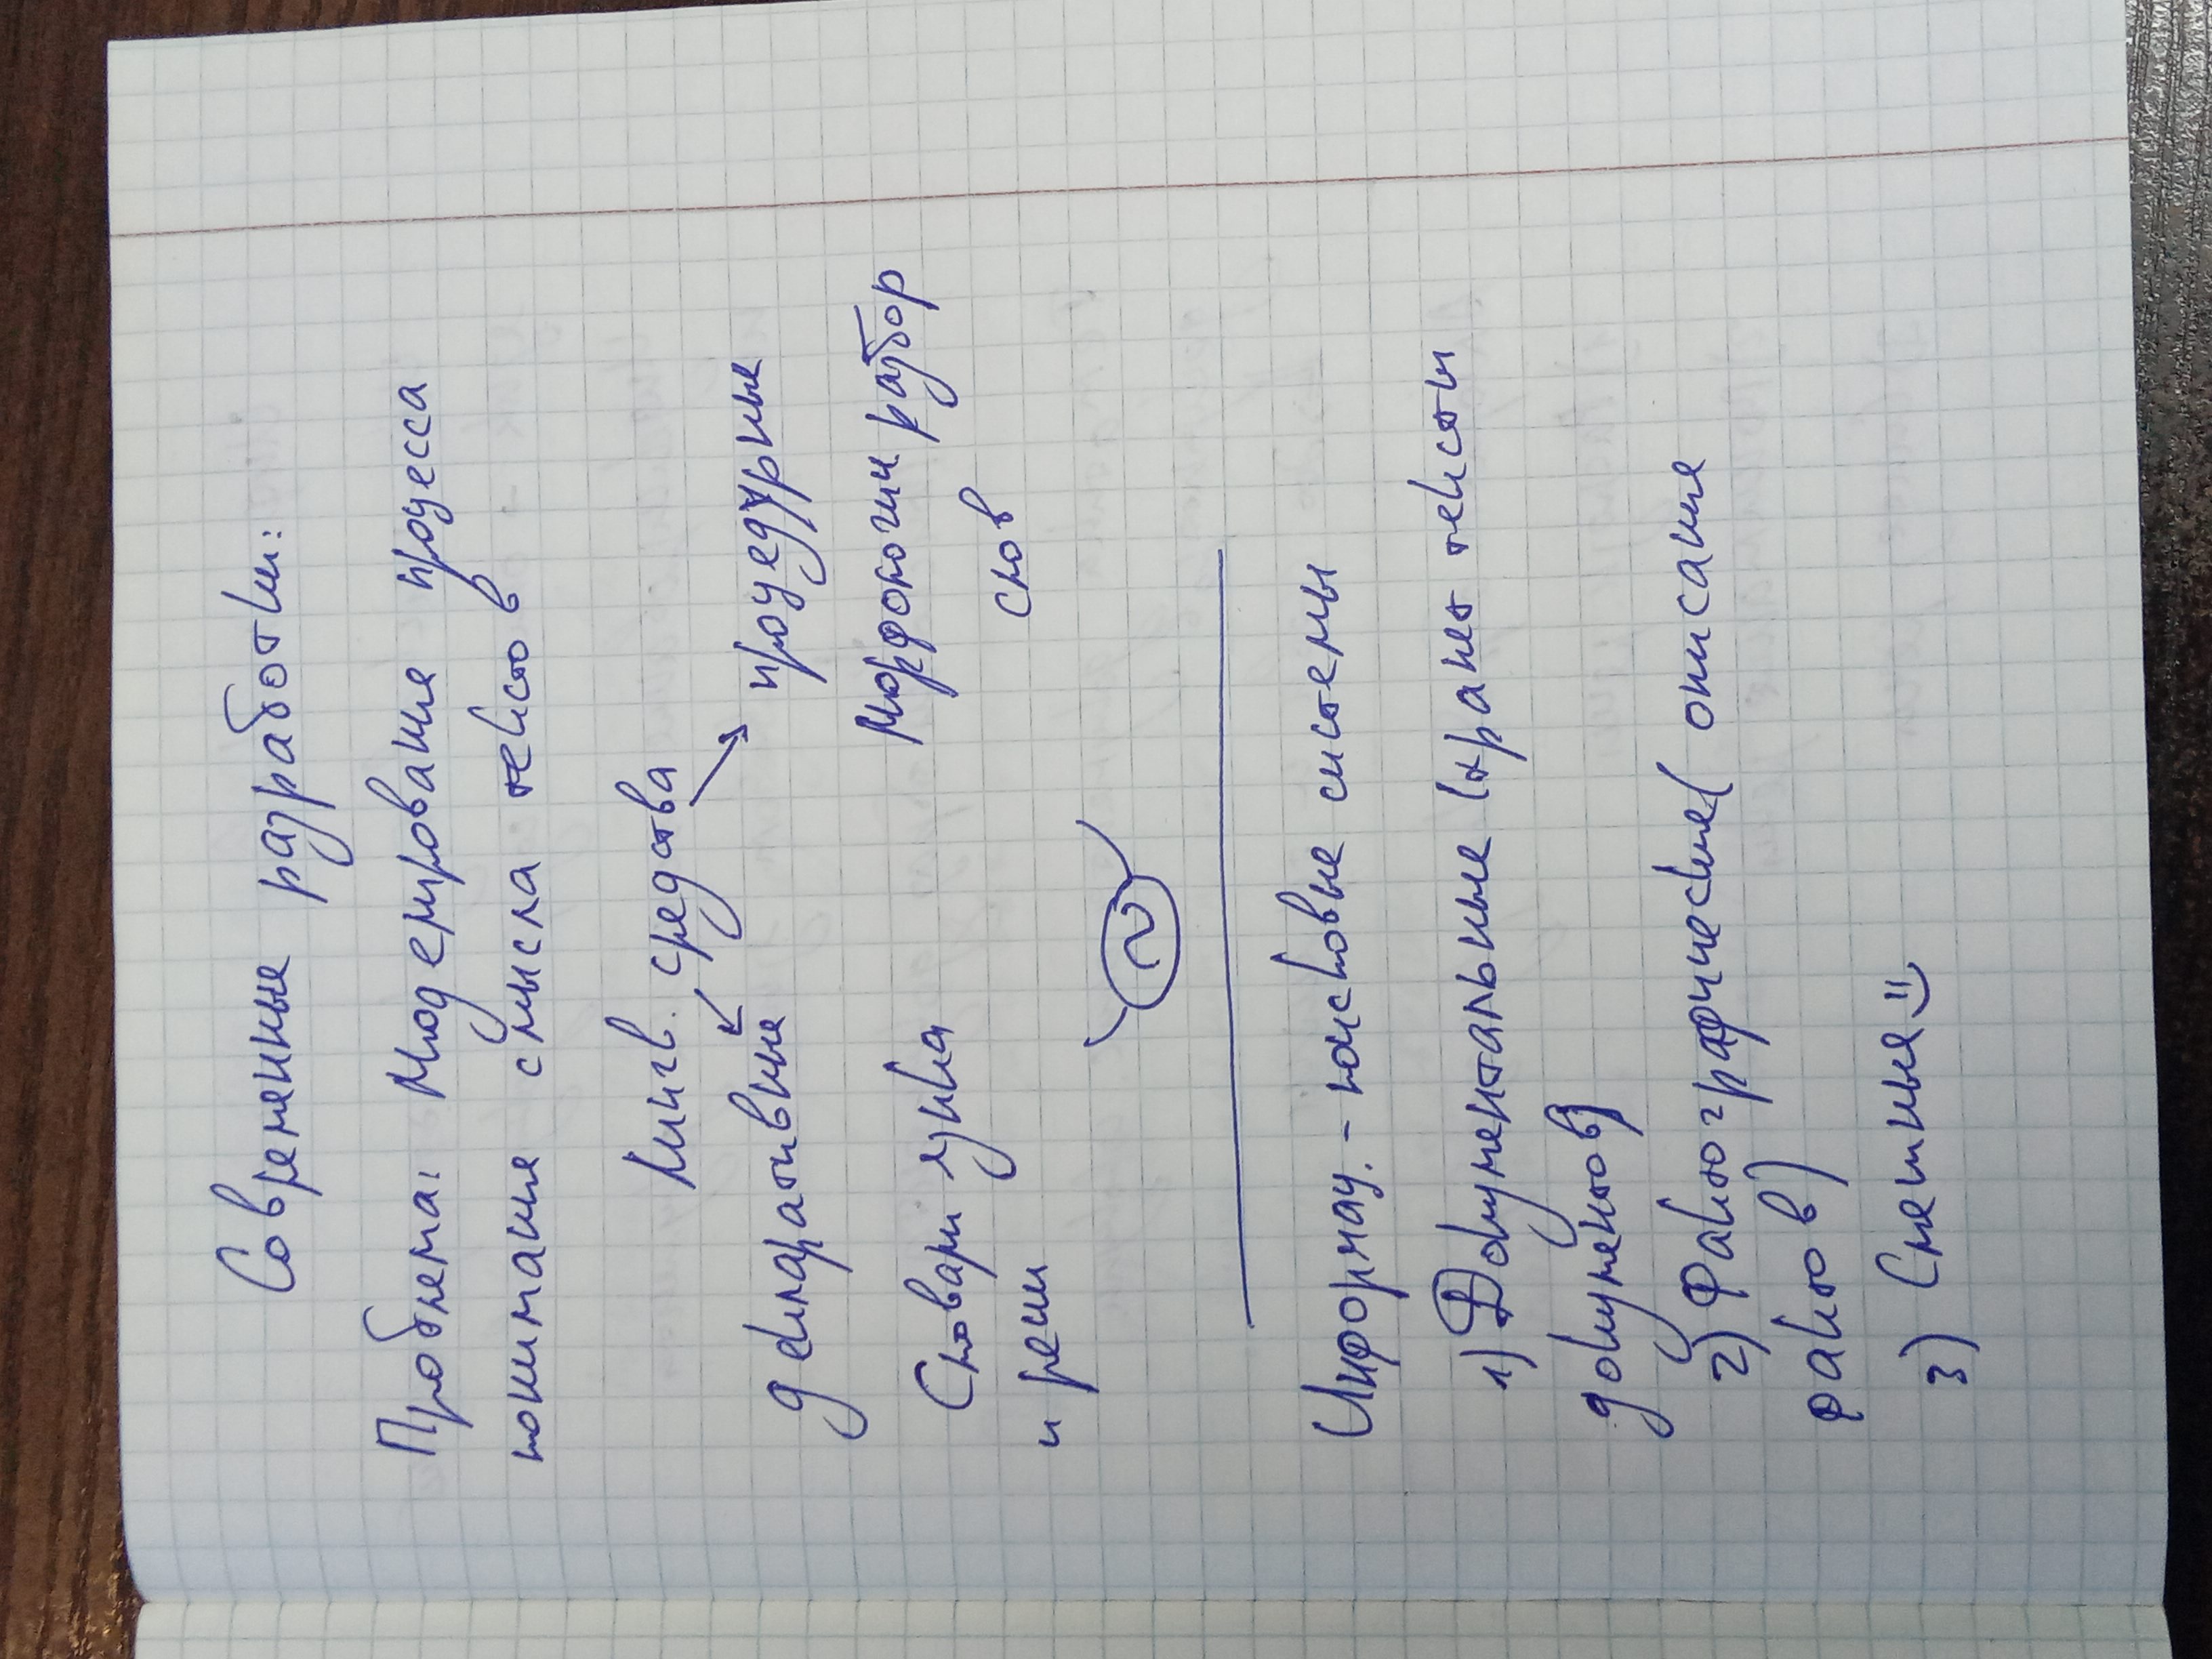 Современные разработки:
Проблема: Моделирование процесса
понимания смысла текстов
Лингв. средства
декларативные
процедурные
Морфологич разбор
слов
Словари языка
и речи
Информац. - поисковые системы
1) Документальные (хранят тексты
документов)
2) Фактографические( описание
фактов)
3) Смешные